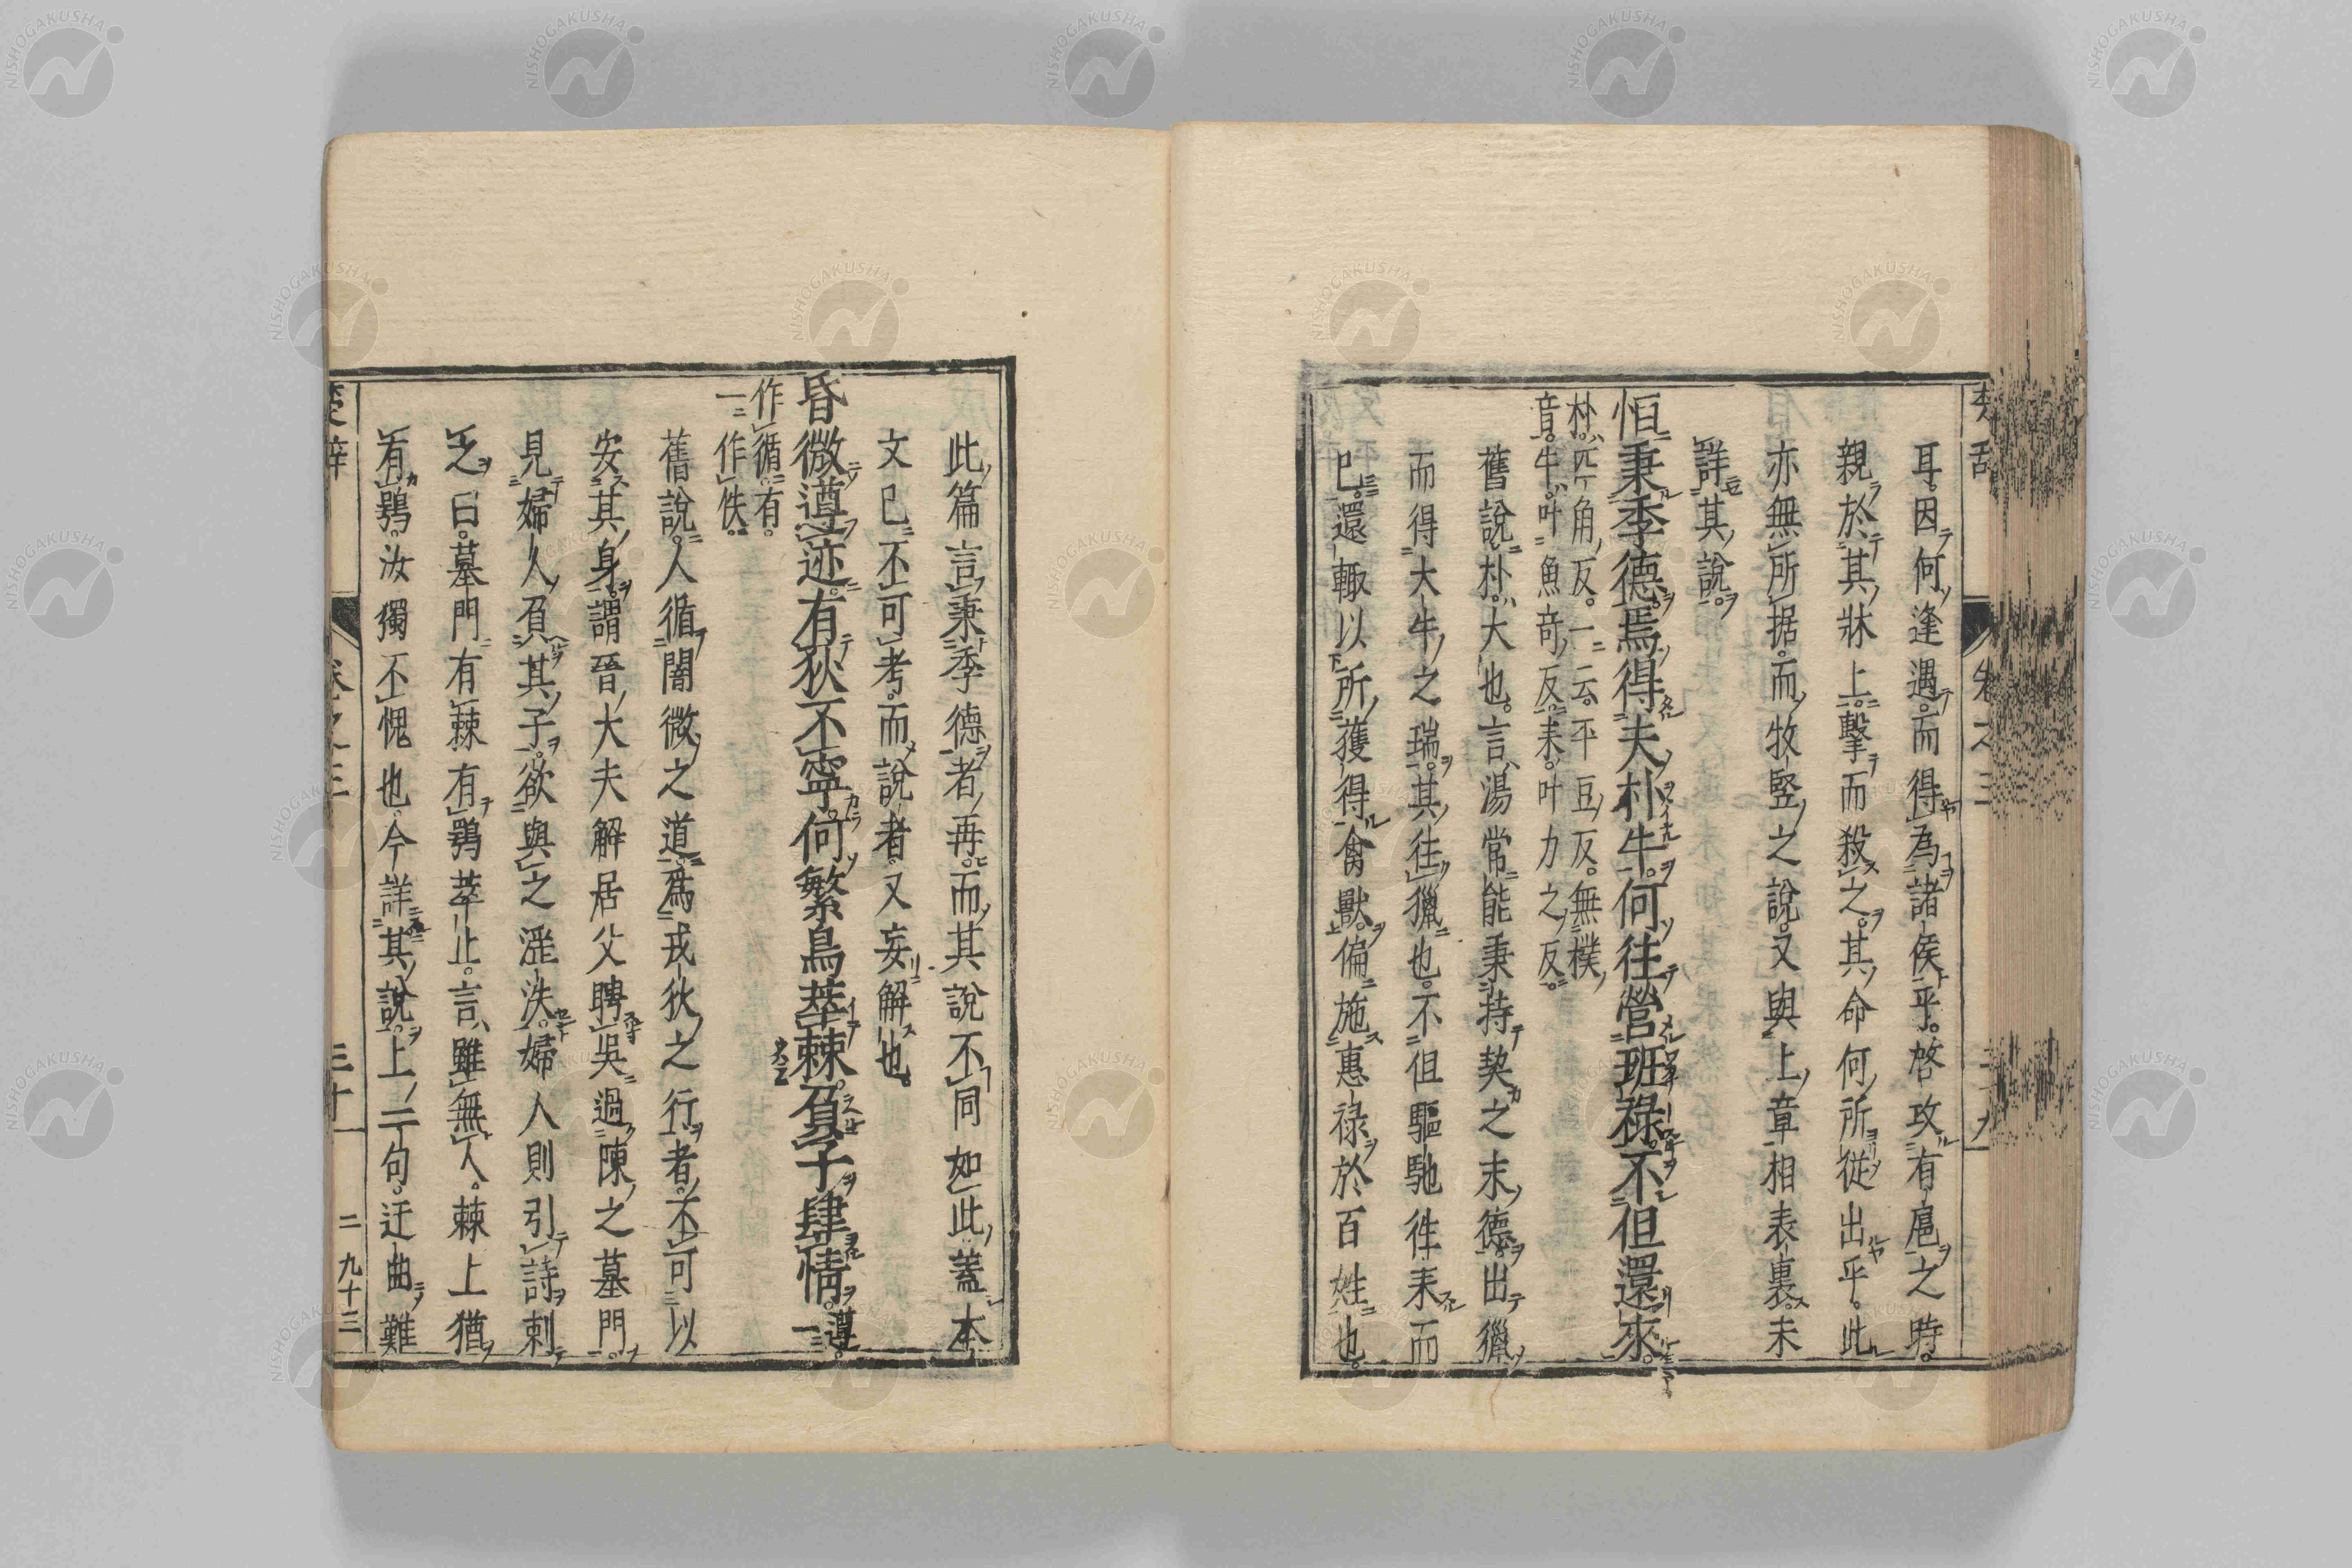 耳。因何逢遇。而得為諸侯乎。啓攻有扈之時。
親於其牀上。擊而殺之。其命何所從出乎。此
亦無所据。而牧竪之說。又與上章相表裏。未
詳其說。
恒秉季德焉得夫朴牛。何往營班祿不但還來。
朴。匹角反。一云平豆反。無樸
音。牛。叶魚奇反。来。叶力之反。
舊說朴。大也。言湯常能秉持契之末德。出獵
而得大牛之瑞。其往獵也。不但驅馳往来而
已。還輙以所獲得禽獸。偏施惠祿於百姓也。
此篇言秉季德者再。而其說不同如此。蓋本
文已不可考。而說者又妄解也。
昏微遵迹。有狄不寧。何繁鳥萃棘。負子肆情。遵。一
作循。有。
一作佚。
舊說。人循闇微之道。爲戎狄之行者。不可以
安其身。謂晉大夫解居父聘吳過陳之墓門。
見婦人負其子。欲與之淫泆。婦人則引詩刺
之曰。墓門有棘。有鴞萃止。言雖無人。棘上猶
有鴞。汝獨不愧也。今詳其說。上二句。迂曲難
卷之三
三十一
二 九十三